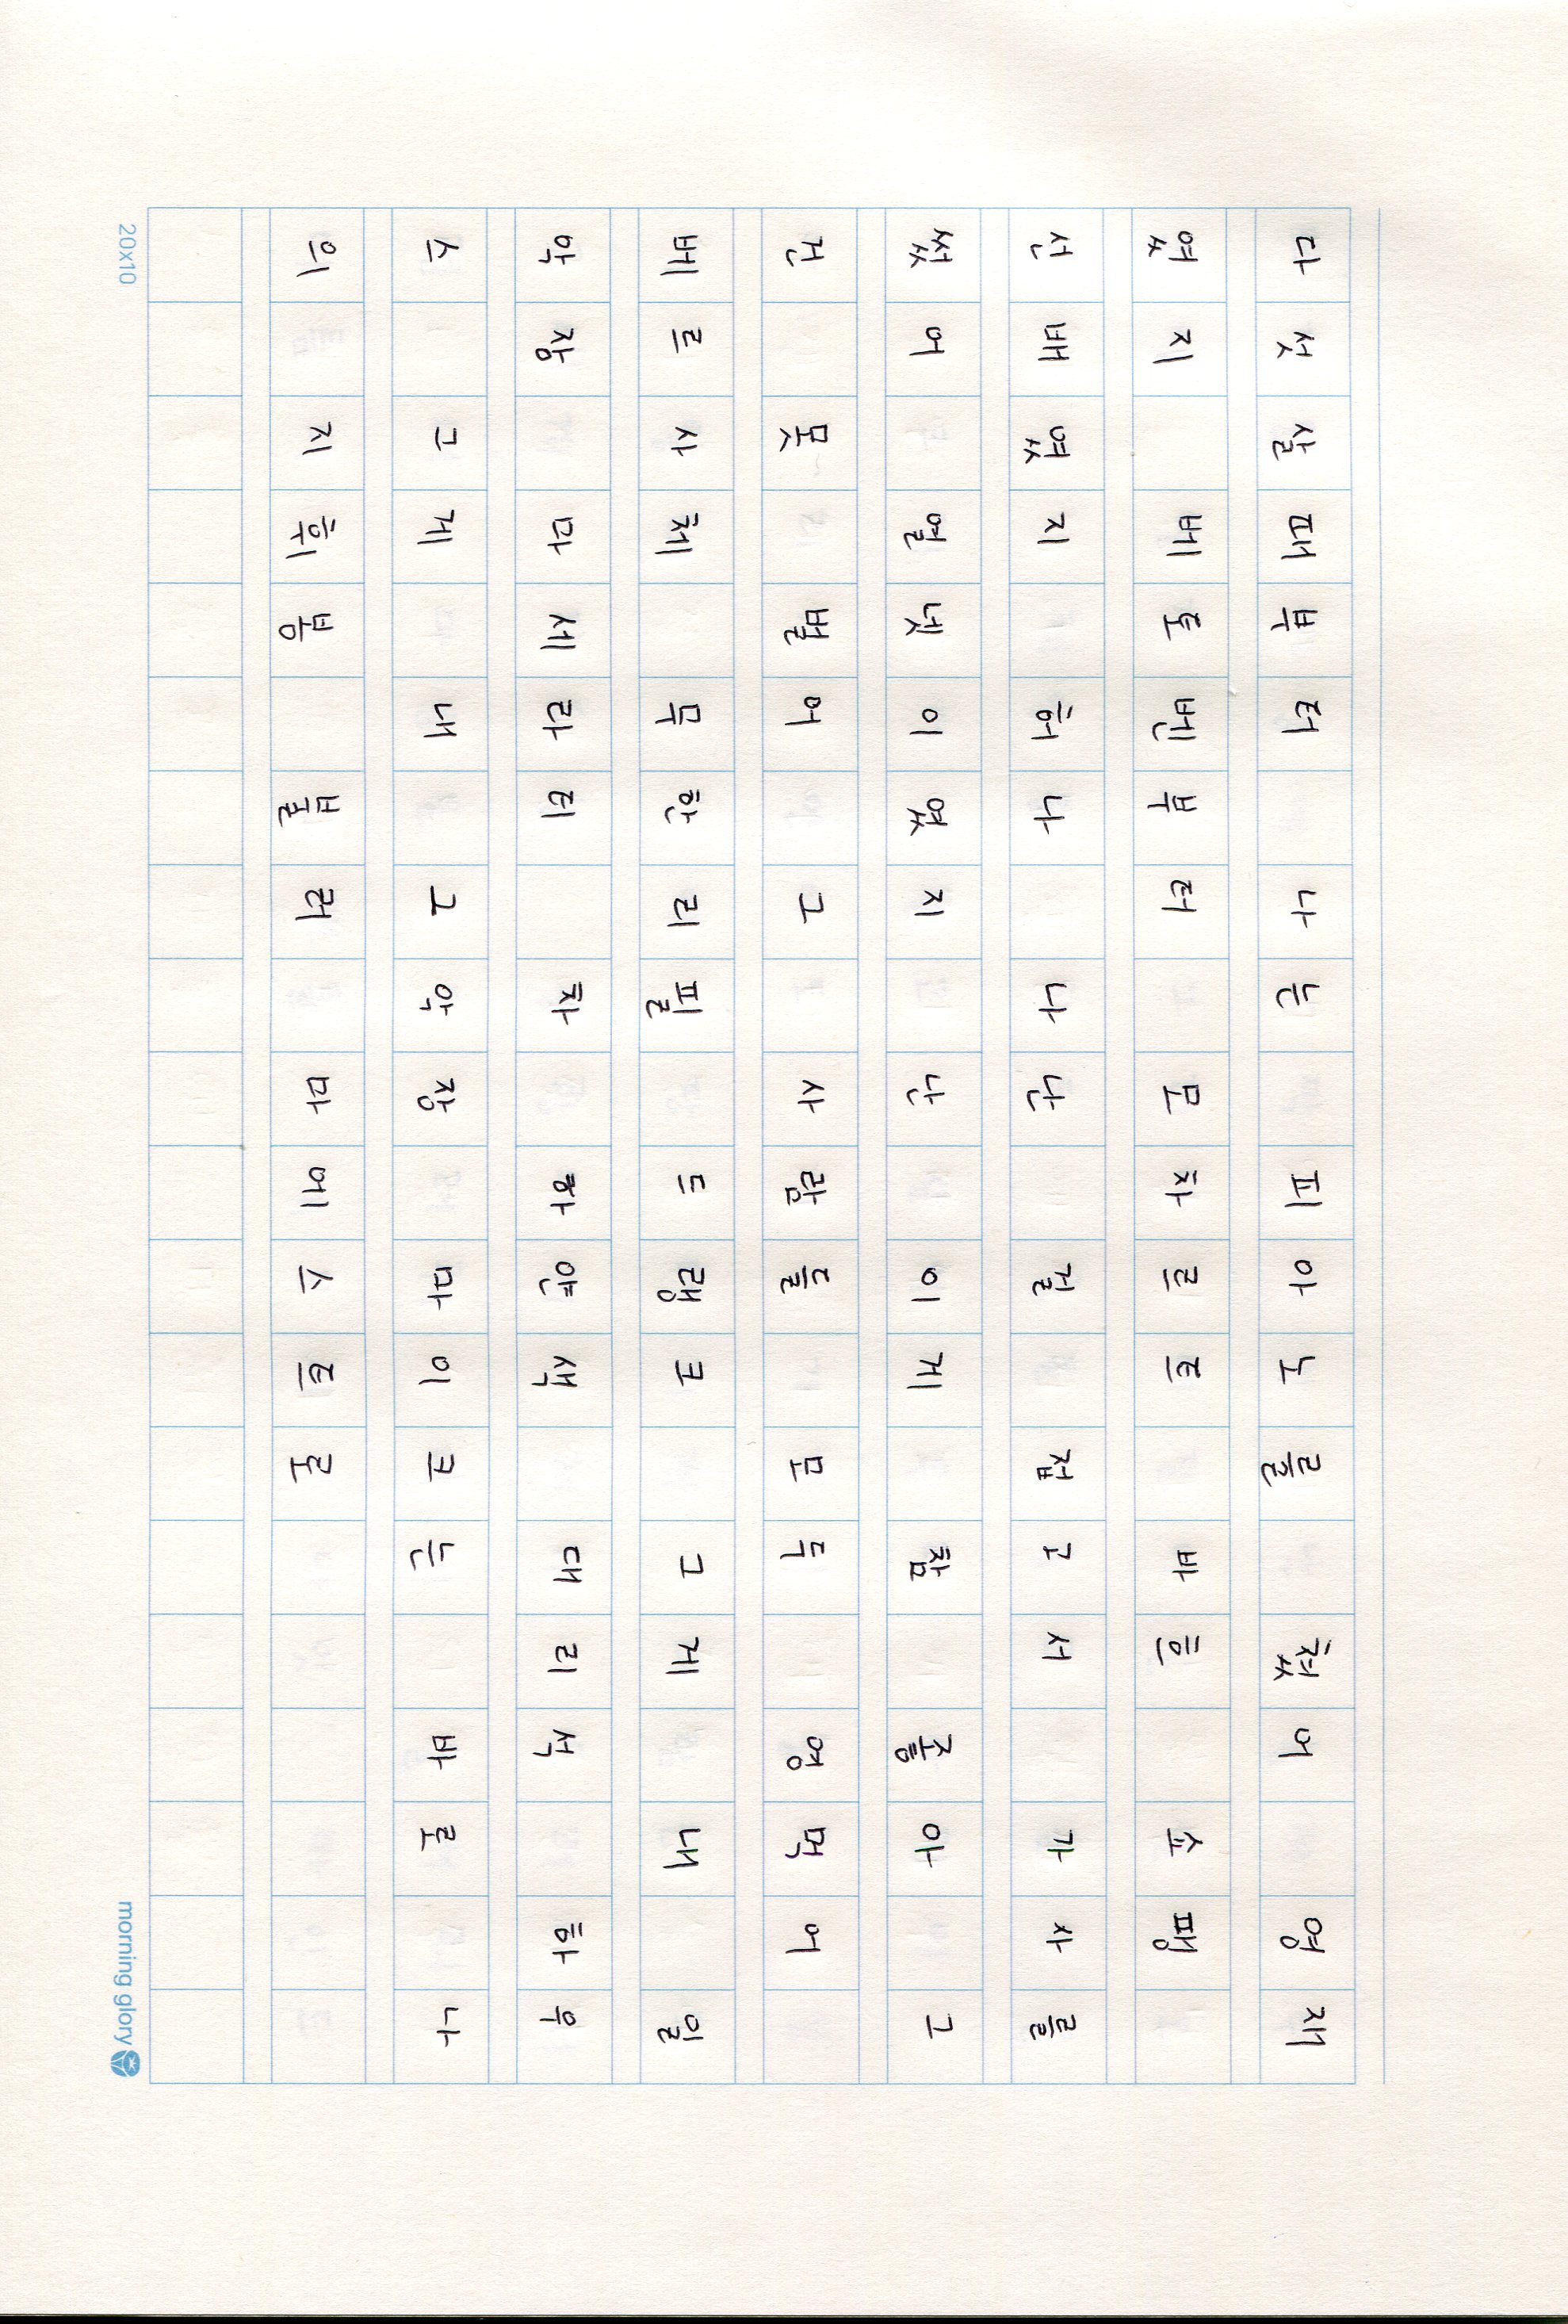 다섯살때부터 나는 피아노를 쳤어 영재
였지 베토벤부터 모차르트 바흐 쇼팽
선배였지 허나 나난 걸 접고서 가사를
썼어 열넷이였지 난 이게 참 좋아 그
건 못 벌어 그 사람들 모두 영먹어
베르사체 무한리필 드랭크 그게 내 일
악장 마세라티 차 하얀색 대리석 하우
스 그게 내 그악장 마이크는 바로 나
의 지휘봉 불러 마에스트로
20x10 morning glory